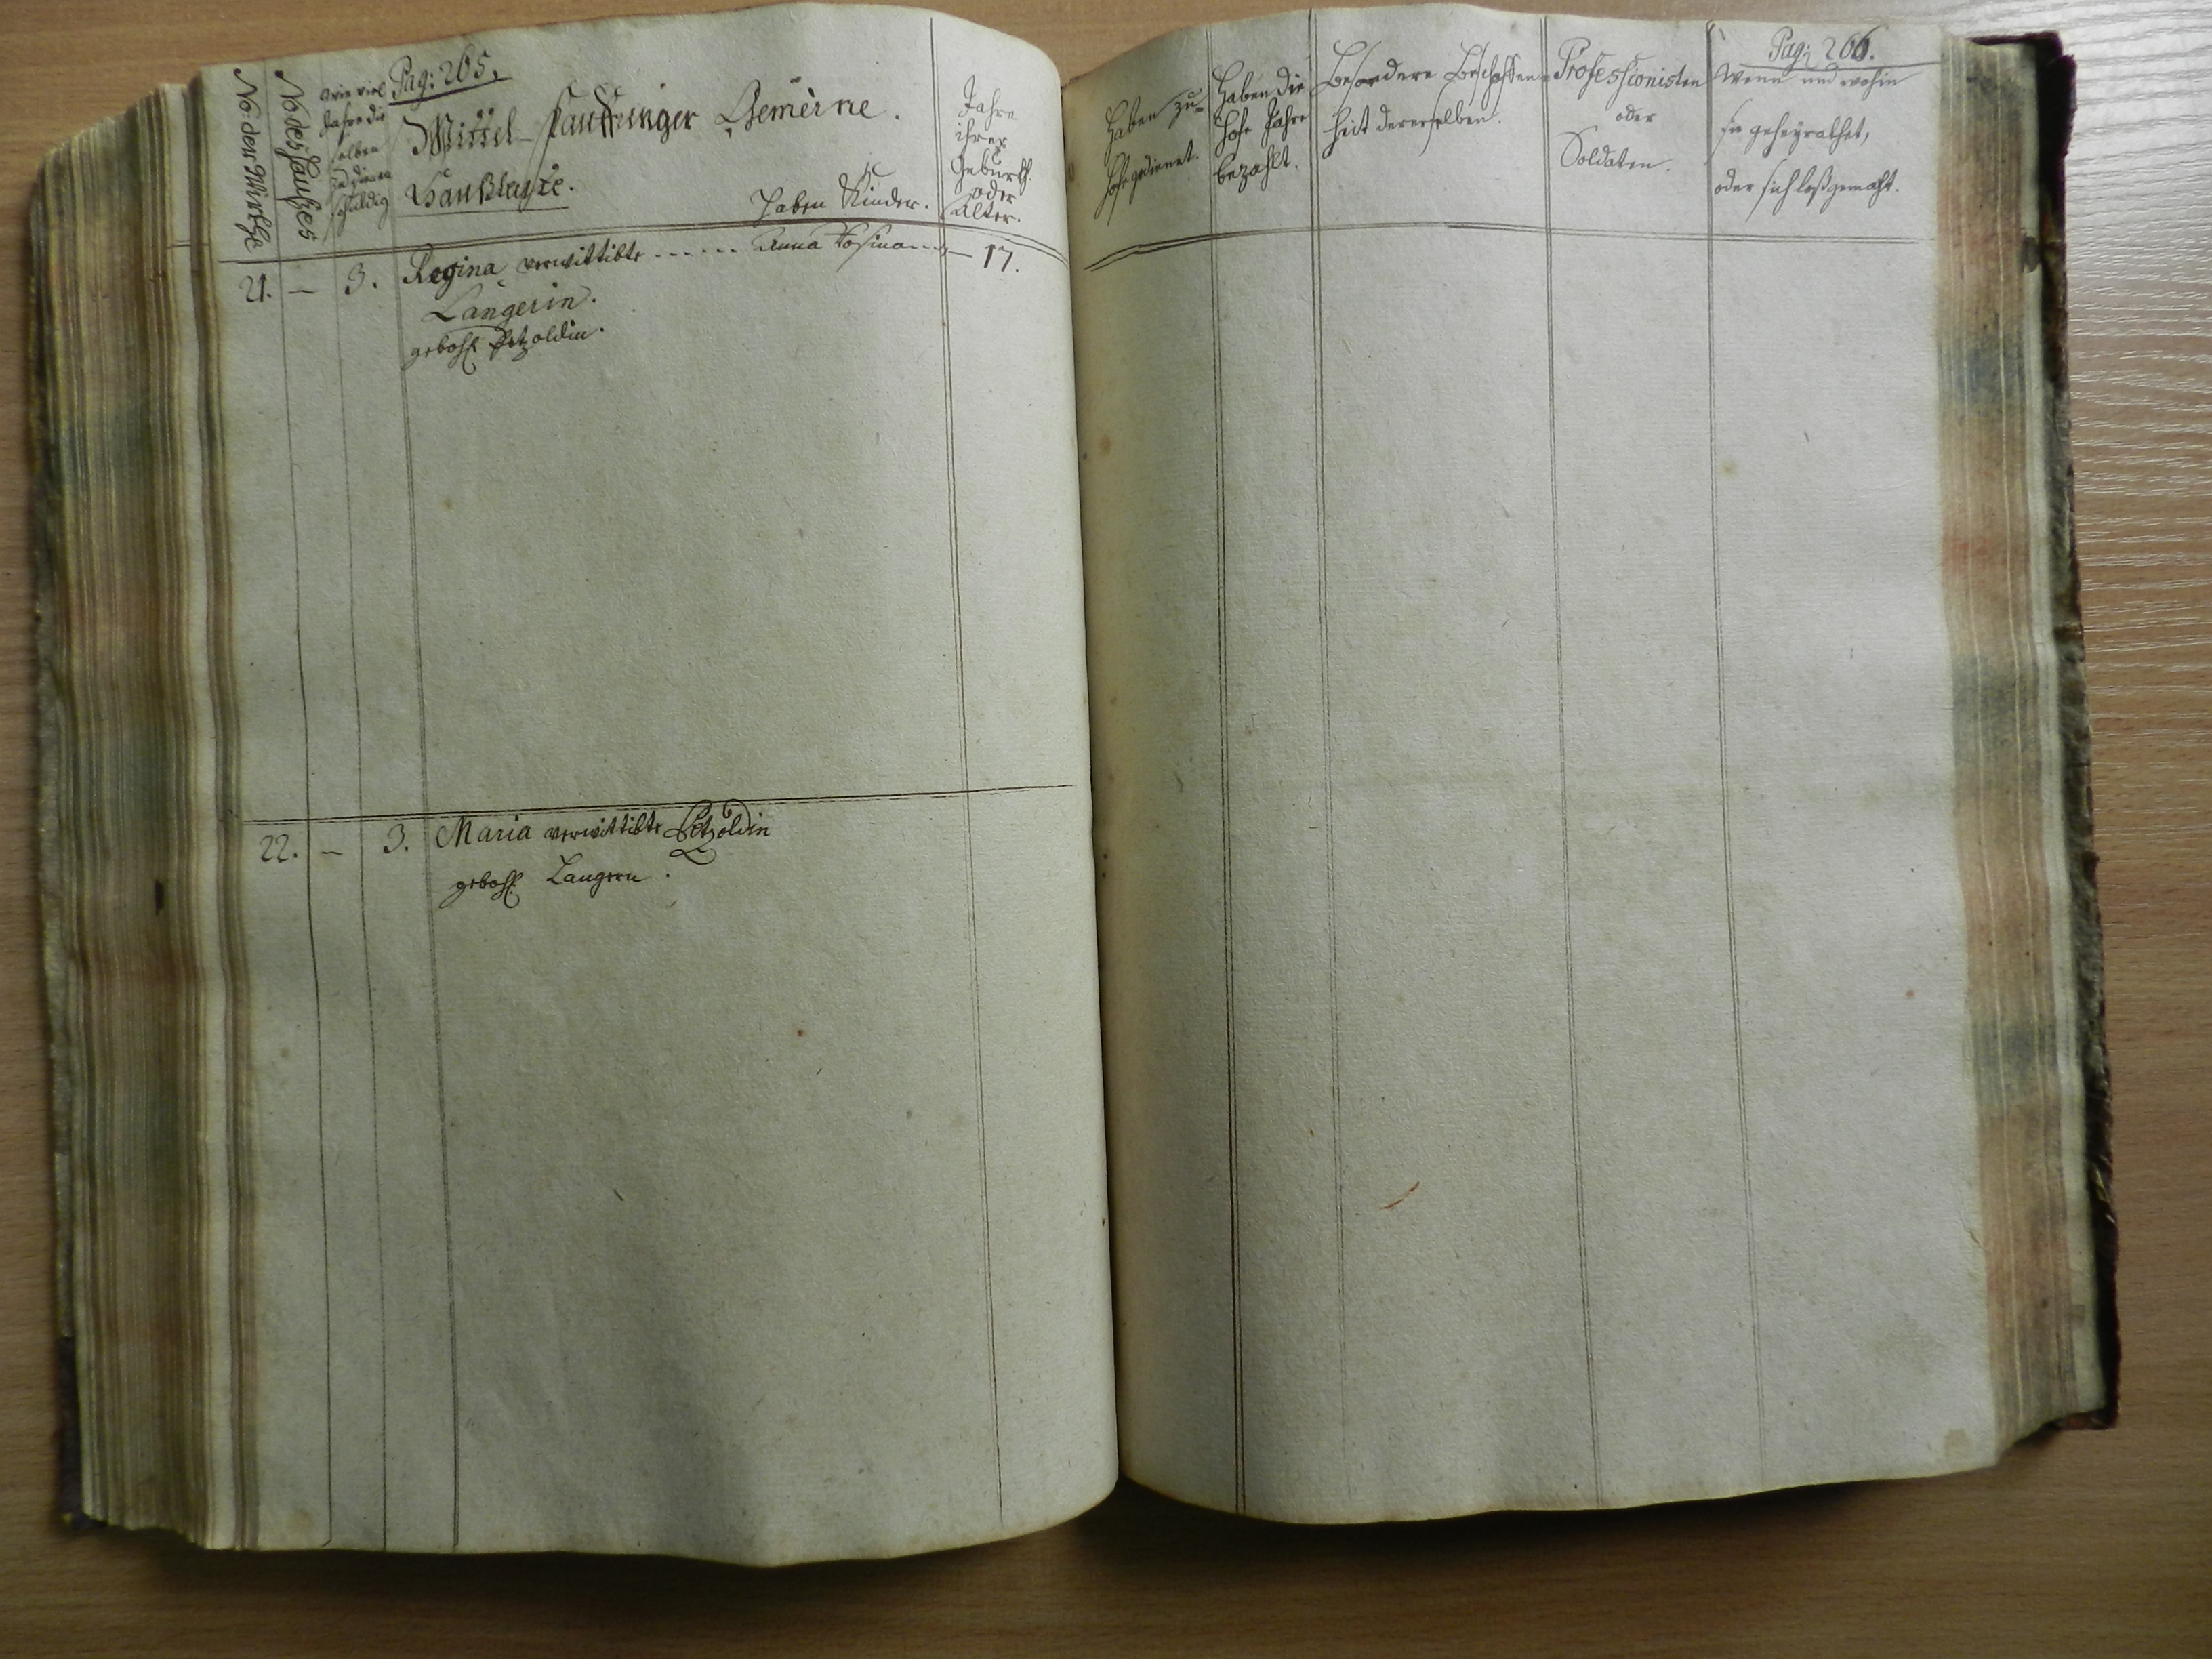 Pag: 265.
No: der Wirthe
No des Haußes
wie viel
Jahre die
selben
zu dienen
schuldig
Mittel-Lauttringer Gemeine.
Haußleute.
Haben Kinder.
Jahre
ihrer
Geburth
oder
Alter.
21. — 3. Regina verwittibte ...... Anna Rosina — 17.
Langerin.
gebohr Petzoldin.
22. — 3. Maria verwittibte Petzoldin
gebohr Langern.
Pag: 266.
Haben zu-
Hofe gedienet.
Haben die
Hofe Jahre
bezahlt.
Besondere Beschaffen-
heit dererselben.
Professionisten
oder
Soldaten.
Wenn und wohin
sie geheyrathet,
oder sich loßgemacht.